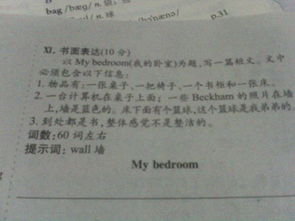 bag /bæg/ n.
p.31
XI. 书面表达(10分)
以 My bedroom(我的卧室)为题,写一篇短文。文中
必须包含以下信息:
1. 物品有:一张桌子、一把椅子、一个书柜和一张床。
2. 一台计算机在桌子上面;一些 Beckham 的照片在墙
上,墙是蓝色的。床下面有个篮球,这个篮球是我弟弟的。
3. 到处都是书,整体感觉不是整洁的。
词数:60 词左右
提示词: wall 墙
My bedroom